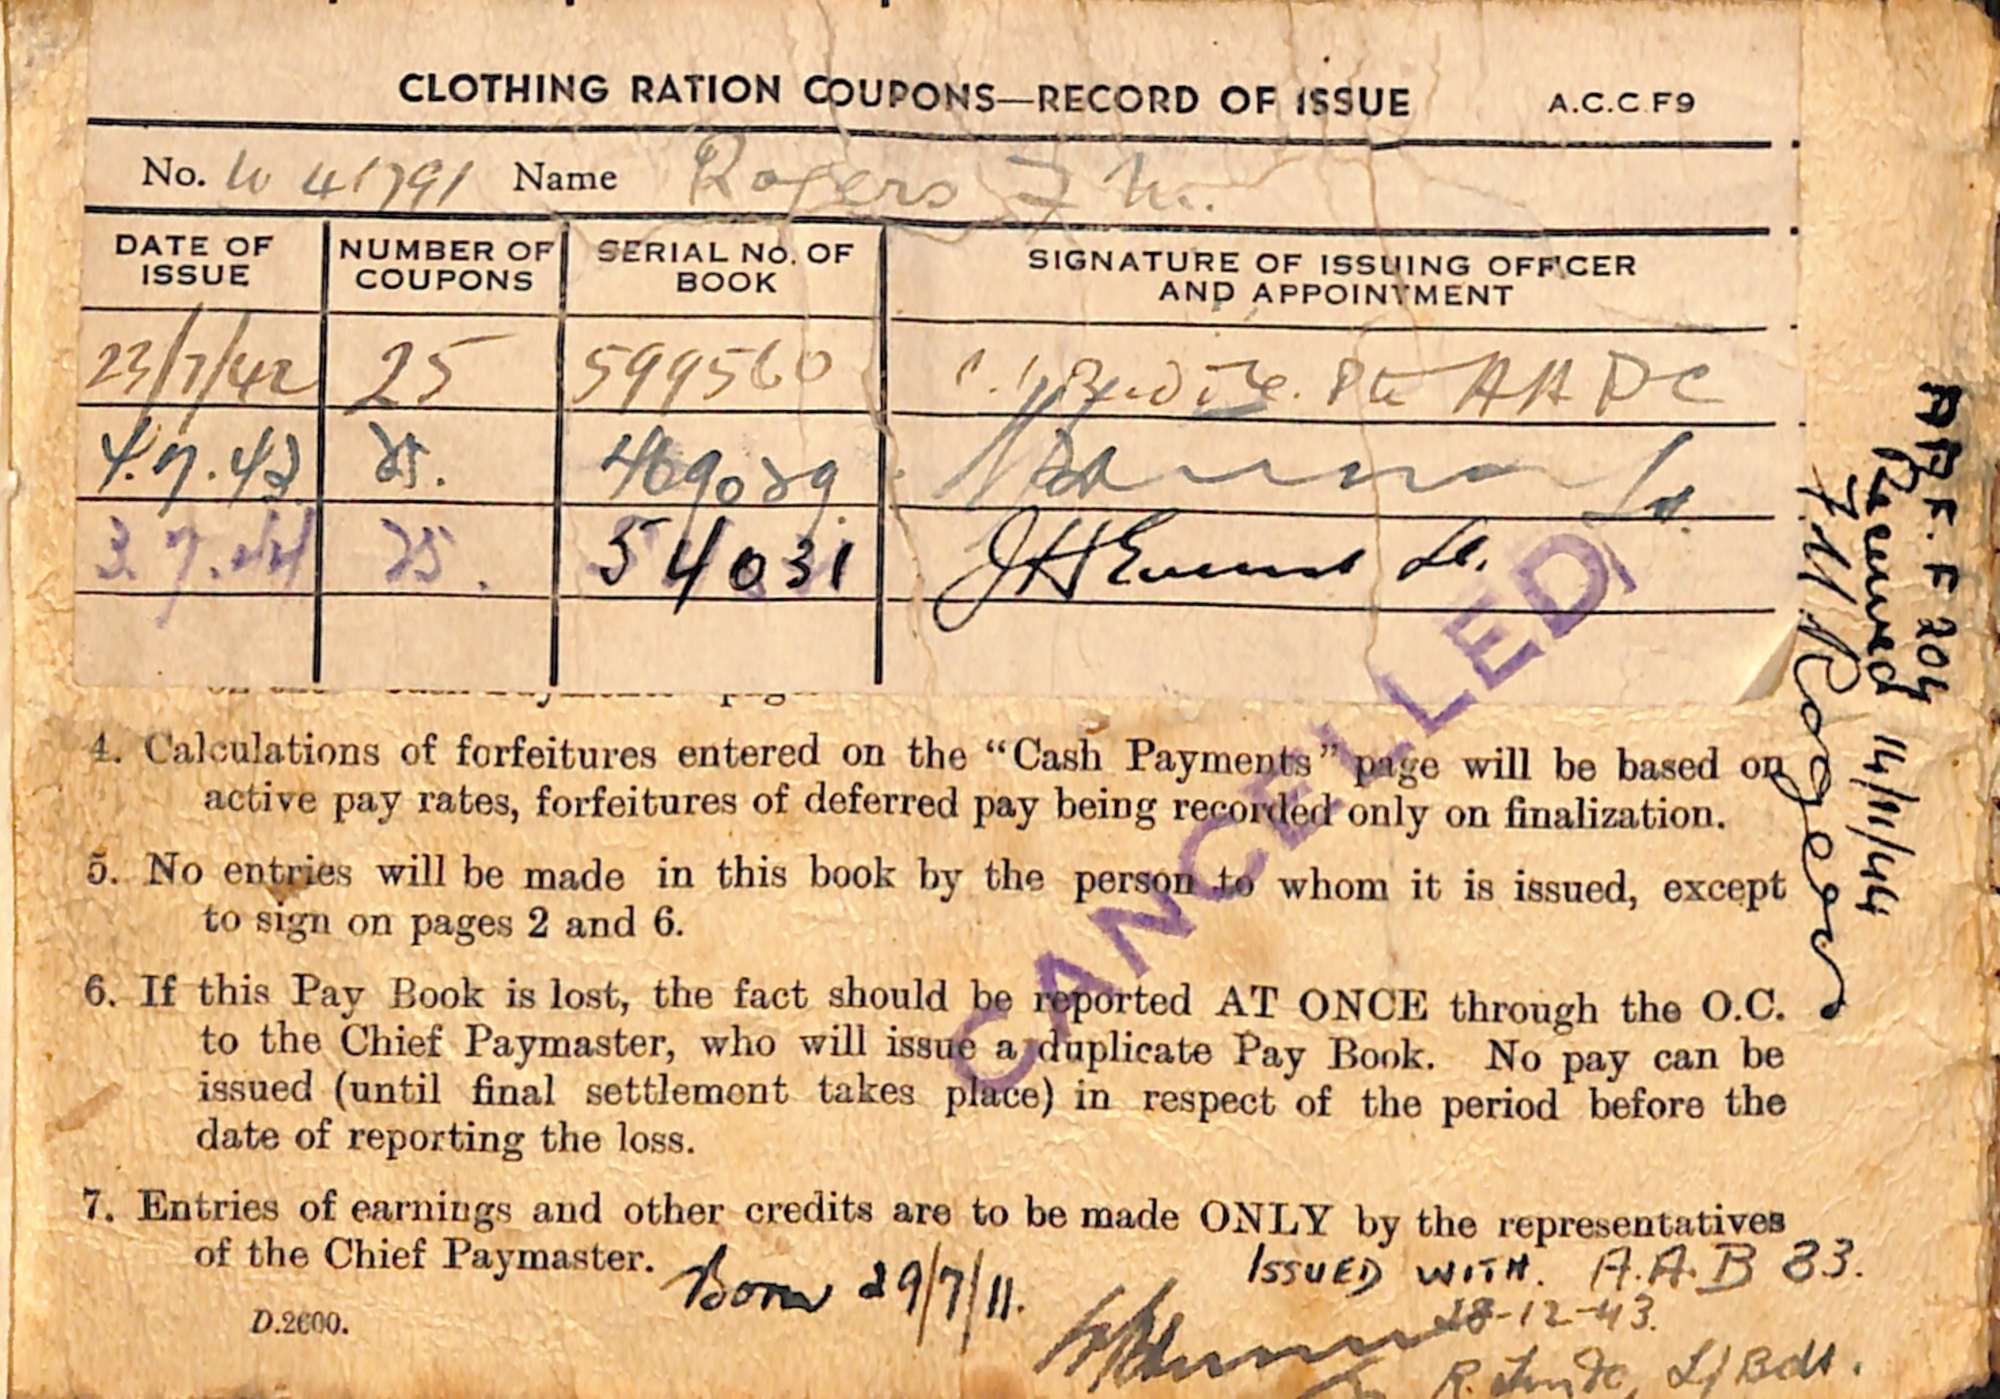 CLOTHING RATION COUPONS—RECORD OF ISSUE A.C.C F9
No. W 41791 Name Rogers F M.
DATE OF ISSUE NUMBER OF COUPONS SERIAL No. OF BOOK SIGNATURE OF ISSUING OFFICER AND APPOINTMENT
23/7/42 25 599560 Pte AAPC
4.7.43 25. 469029 Lt
3.7.44 25. 54031 JH Lt.
4. Calculations of forfeitures entered on the “Cash Payments” page will be based on
active pay rates, forfeitures of deferred pay being recorded only on finalization.
5. No entries will be made in this book by the person to whom it is issued, except
to sign on pages 2 and 6.
6. If this Pay Book is lost, the fact should be reported AT ONCE through the O.C.
to the Chief Paymaster, who will issue a duplicate Pay Book. No pay can be
issued (until final settlement takes place) in respect of the period before the
date of reporting the loss.
7. Entries of earnings and other credits are to be made ONLY by the representatives
of the Chief Paymaster.
Born 29/7/11.
ISSUED WITH. A.A.B 83.
28-12-43.
R. L/Bdr.
D.2600.
CANCELLED
F 204
Received 14/11/44
F M Rogers